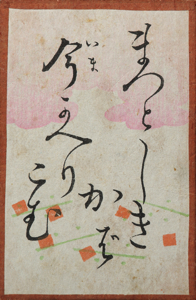 まつとしき
かば
今かへり
いま
こむ